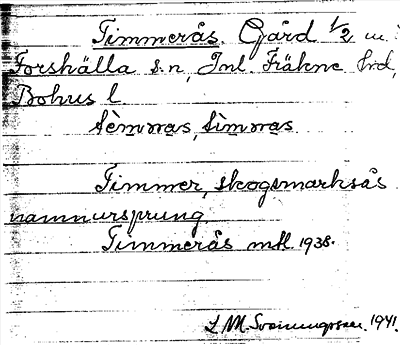 Timmerås. Gård 1/2 m
Forshälla s.n, Inl. Fräkne hd,
Bohus l.
Timmer, skogsmarksås
namnursprung.
Timmerås mtl 1938.
L M. Svenungsson. 1941.